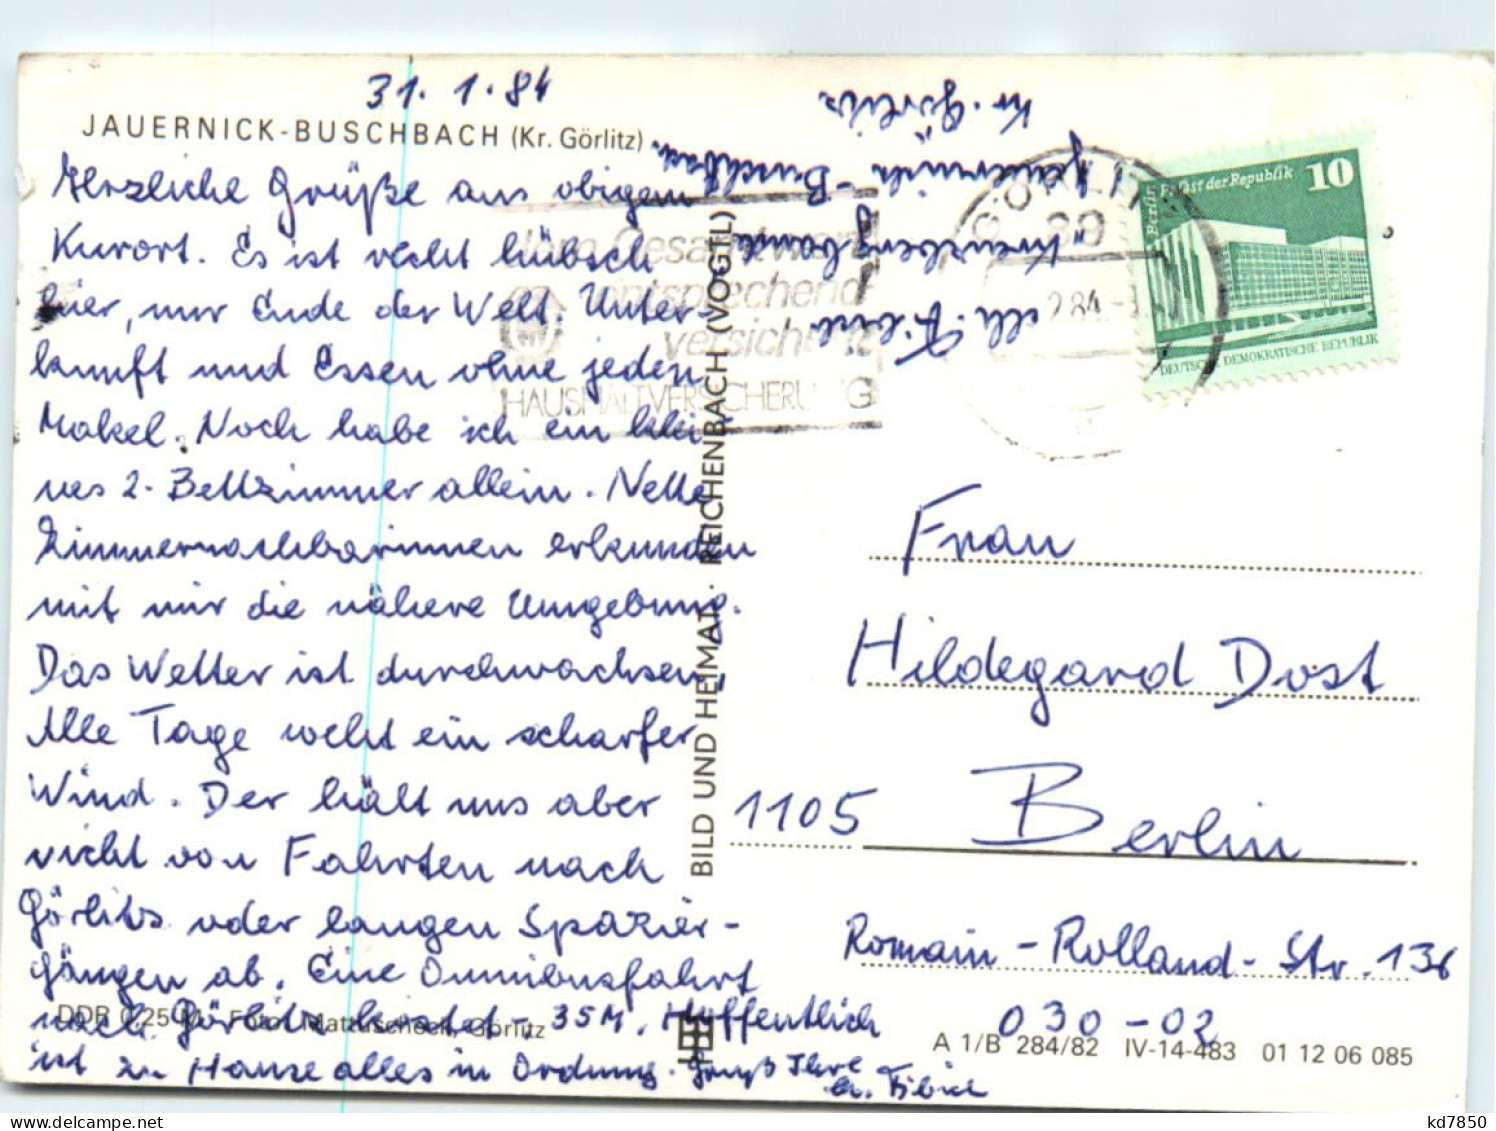 31.1.84
JAUERNICK-BUSCHBACH (Kr. Görlitz)
Herzliche Grüße aus obigem
Kurort. Es ist recht hübsch
hier, nur Ende der Welt. Unter-
kunft und Essen ohne jeden
Makel. Noch habe ich ein klei-
nes 2-Bettzimmer allein. Nette
Zimmernachbarinnen erkunden
mit mir die nähere Umgebung.
Das Wetter ist durchwachsen,
Alle Tage weht ein scharfer
Wind. Der hält uns aber
nicht von Fahrten nach
Görlitz oder langen Spazier-
gängen ab. Eine Omnibusfahrt
nach Görlitz kostet -,35M. Hoffentlich
ist zu Hause alles in Ordnung. Gruß Ihre
Fibich
DDR 0,25 M Foto: Görlitz
BILD UND HEIMAT · REICHENBACH (VOGTL)
Kr. Görlitz
Jauernick-Buschbach
"Kreuzbergbaude"
Gesamtwert
entsprechend
versichert
HAUSHALTVERSICHERUNG
GÖRLITZ
89
2.84
Berlin Palast der Republik 10
DEUTSCHE DEMOKRATISCHE REPUBLIK
Frau
Hildegard Dost
1105 Berlin
Romain-Rolland-Str. 136
030-02
A 1/B 284/82 IV-14-483 01 12 06 085
kd7850